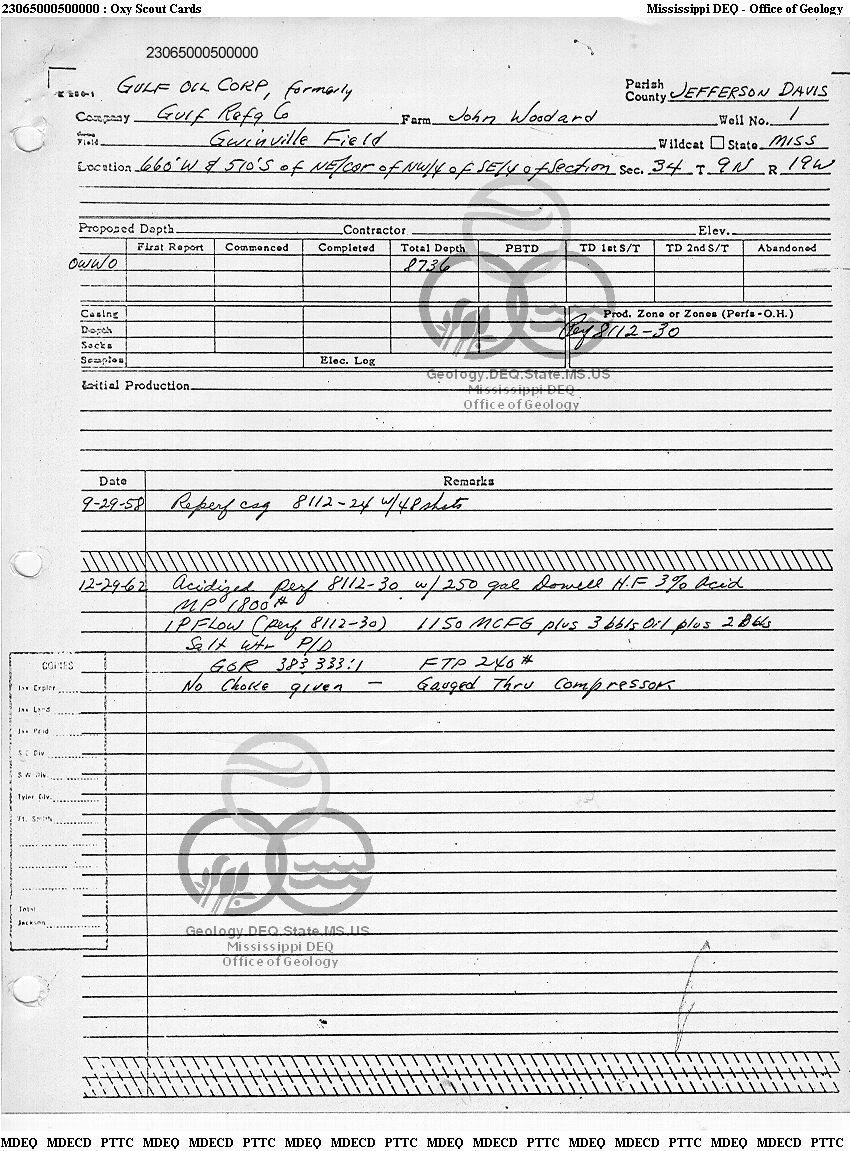 23065000500000 : Oxy Scout Cards Mississippi DEQ - Office of Geology
23065000500000
GULF OIL CORP, formerly
Parish
County JEFFERSON DAVIS
Company Gulf Refg Co Farm John Woodard Well No. 1
Field Gwinville Field Wildcat State MISS
Location 660'W & 510'S of NE/cor of NW/4 of SE/4 of Section Sec. 34 T 9N R 19W
Proposed Depth Contractor Elev.
First Report Commenced Completed Total Depth PBTD TD 1st S/T TD 2nd S/T Abandoned
OWWO 8736
Casing Prod. Zone or Zones (Perfs - O.H.)
Depth 8112-30
Sacks
Samples Elec. Log
Geology.DEQ.State.MS.US
Mississippi DEQ
Office of Geology
Initial Production
Date Remarks
9-29-58 Reperf csg 8112-24 w/48 shots
12-29-62 Acidized perf 8112-30 w/250 gal Dowell H.F 3% Acid
MP 1800#
IPFLOW (perf 8112-30) 1150 MCFG plus 3 bbls Oil plus 2 Bbls
Salt wtr P/D
GOR 383 333:1 FTP 240#
No Choke given - Gauged Thru Compressors
COPIES
Jax Explor
Jax Land
Jax Prod
S E Div
S W Div
Tyler Div.
Ft. Smith
Total
Jackson
Geology.DEQ.State.MS.US
Mississippi DEQ
Office of Geology
MDEQ MDECD PTTC MDEQ MDECD PTTC MDEQ MDECD PTTC MDEQ MDECD PTTC MDEQ MDECD PTTC MDEQ MDECD PTTC